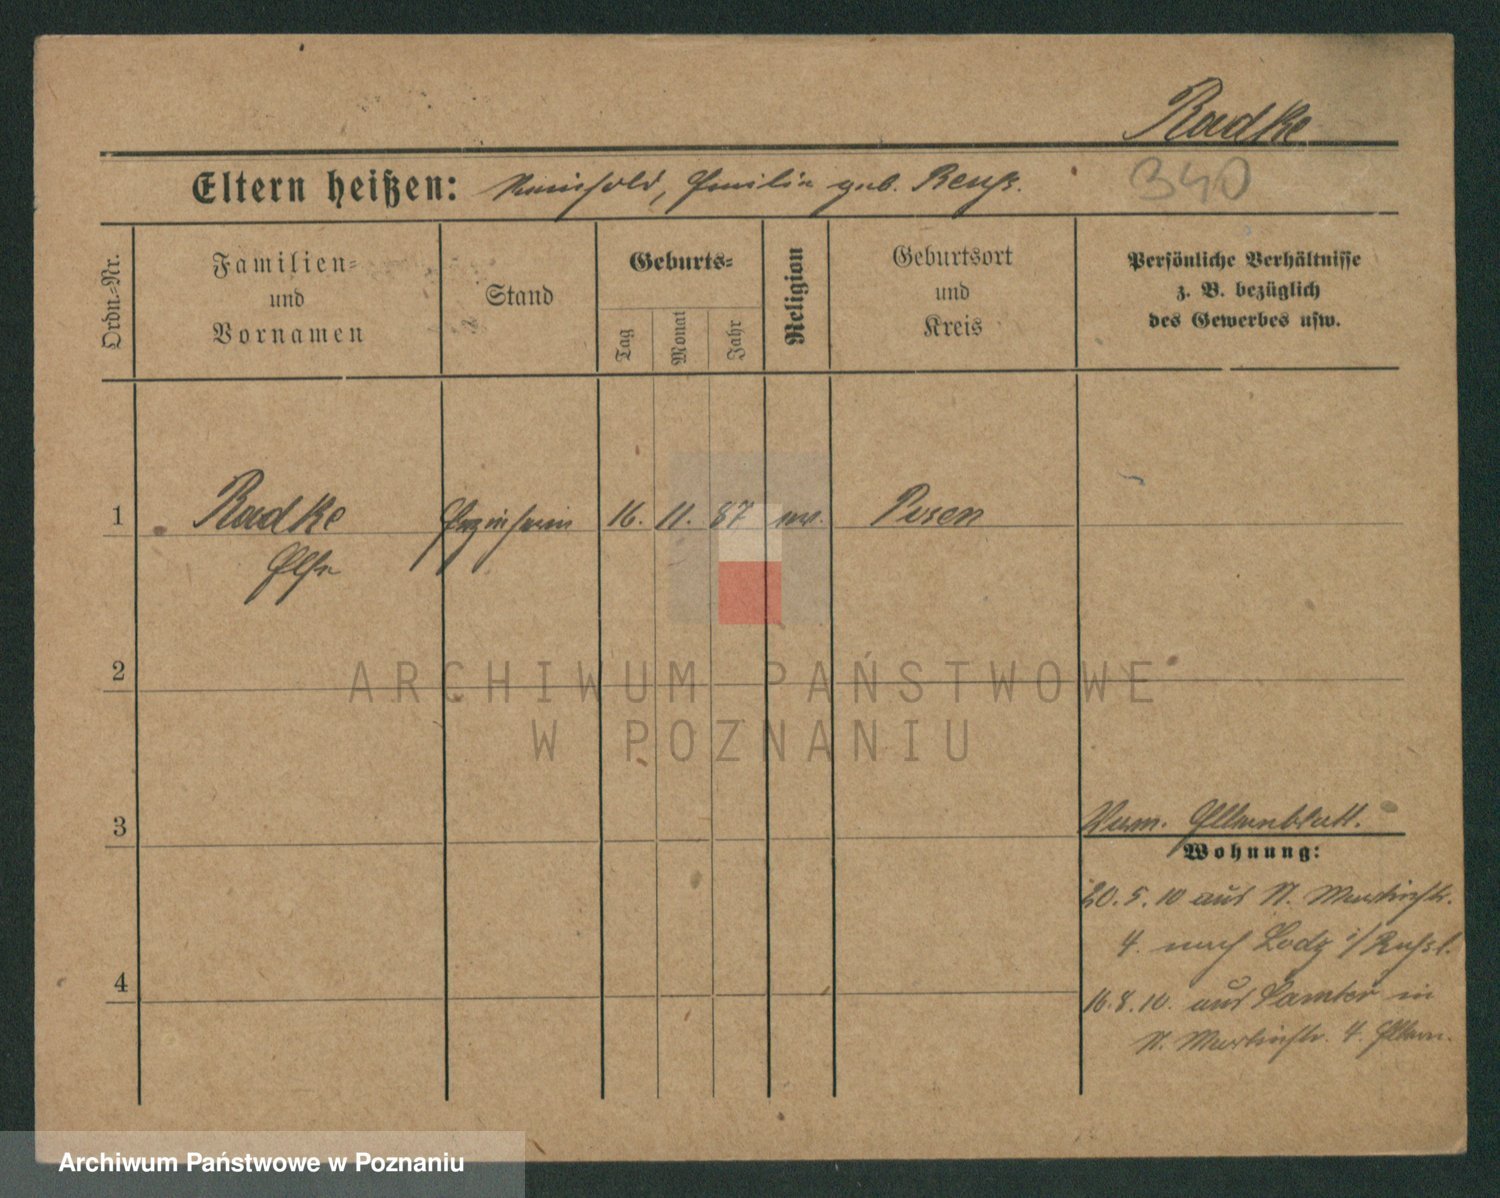 Radke
340
Eltern heißen: Reinhold, Emilie geb. Reuß.
Ordn.-Nr.
Familien-
und
Vornamen
Stand
Geburts-
Tag
Monat
Jahr
Religion
Geburtsort
und
Kreis
Persönliche Verhältnisse
z. B. bezüglich
des Gewerbes usw.
1 Radke Erzieherin 16. 11. 87 ev. Posen
Else
2
3
Verm. Elternblatt.
Wohnung:
20.5.10 aus St. Martinstr.
4. nach Lodz i/Rußl.
4
16.8.10. aus Samter in
St. Martinstr. 4. Eltern.
ARCHIWUM PAŃSTWOWE
W POZNANIU
Archiwum Państwowe w Poznaniu